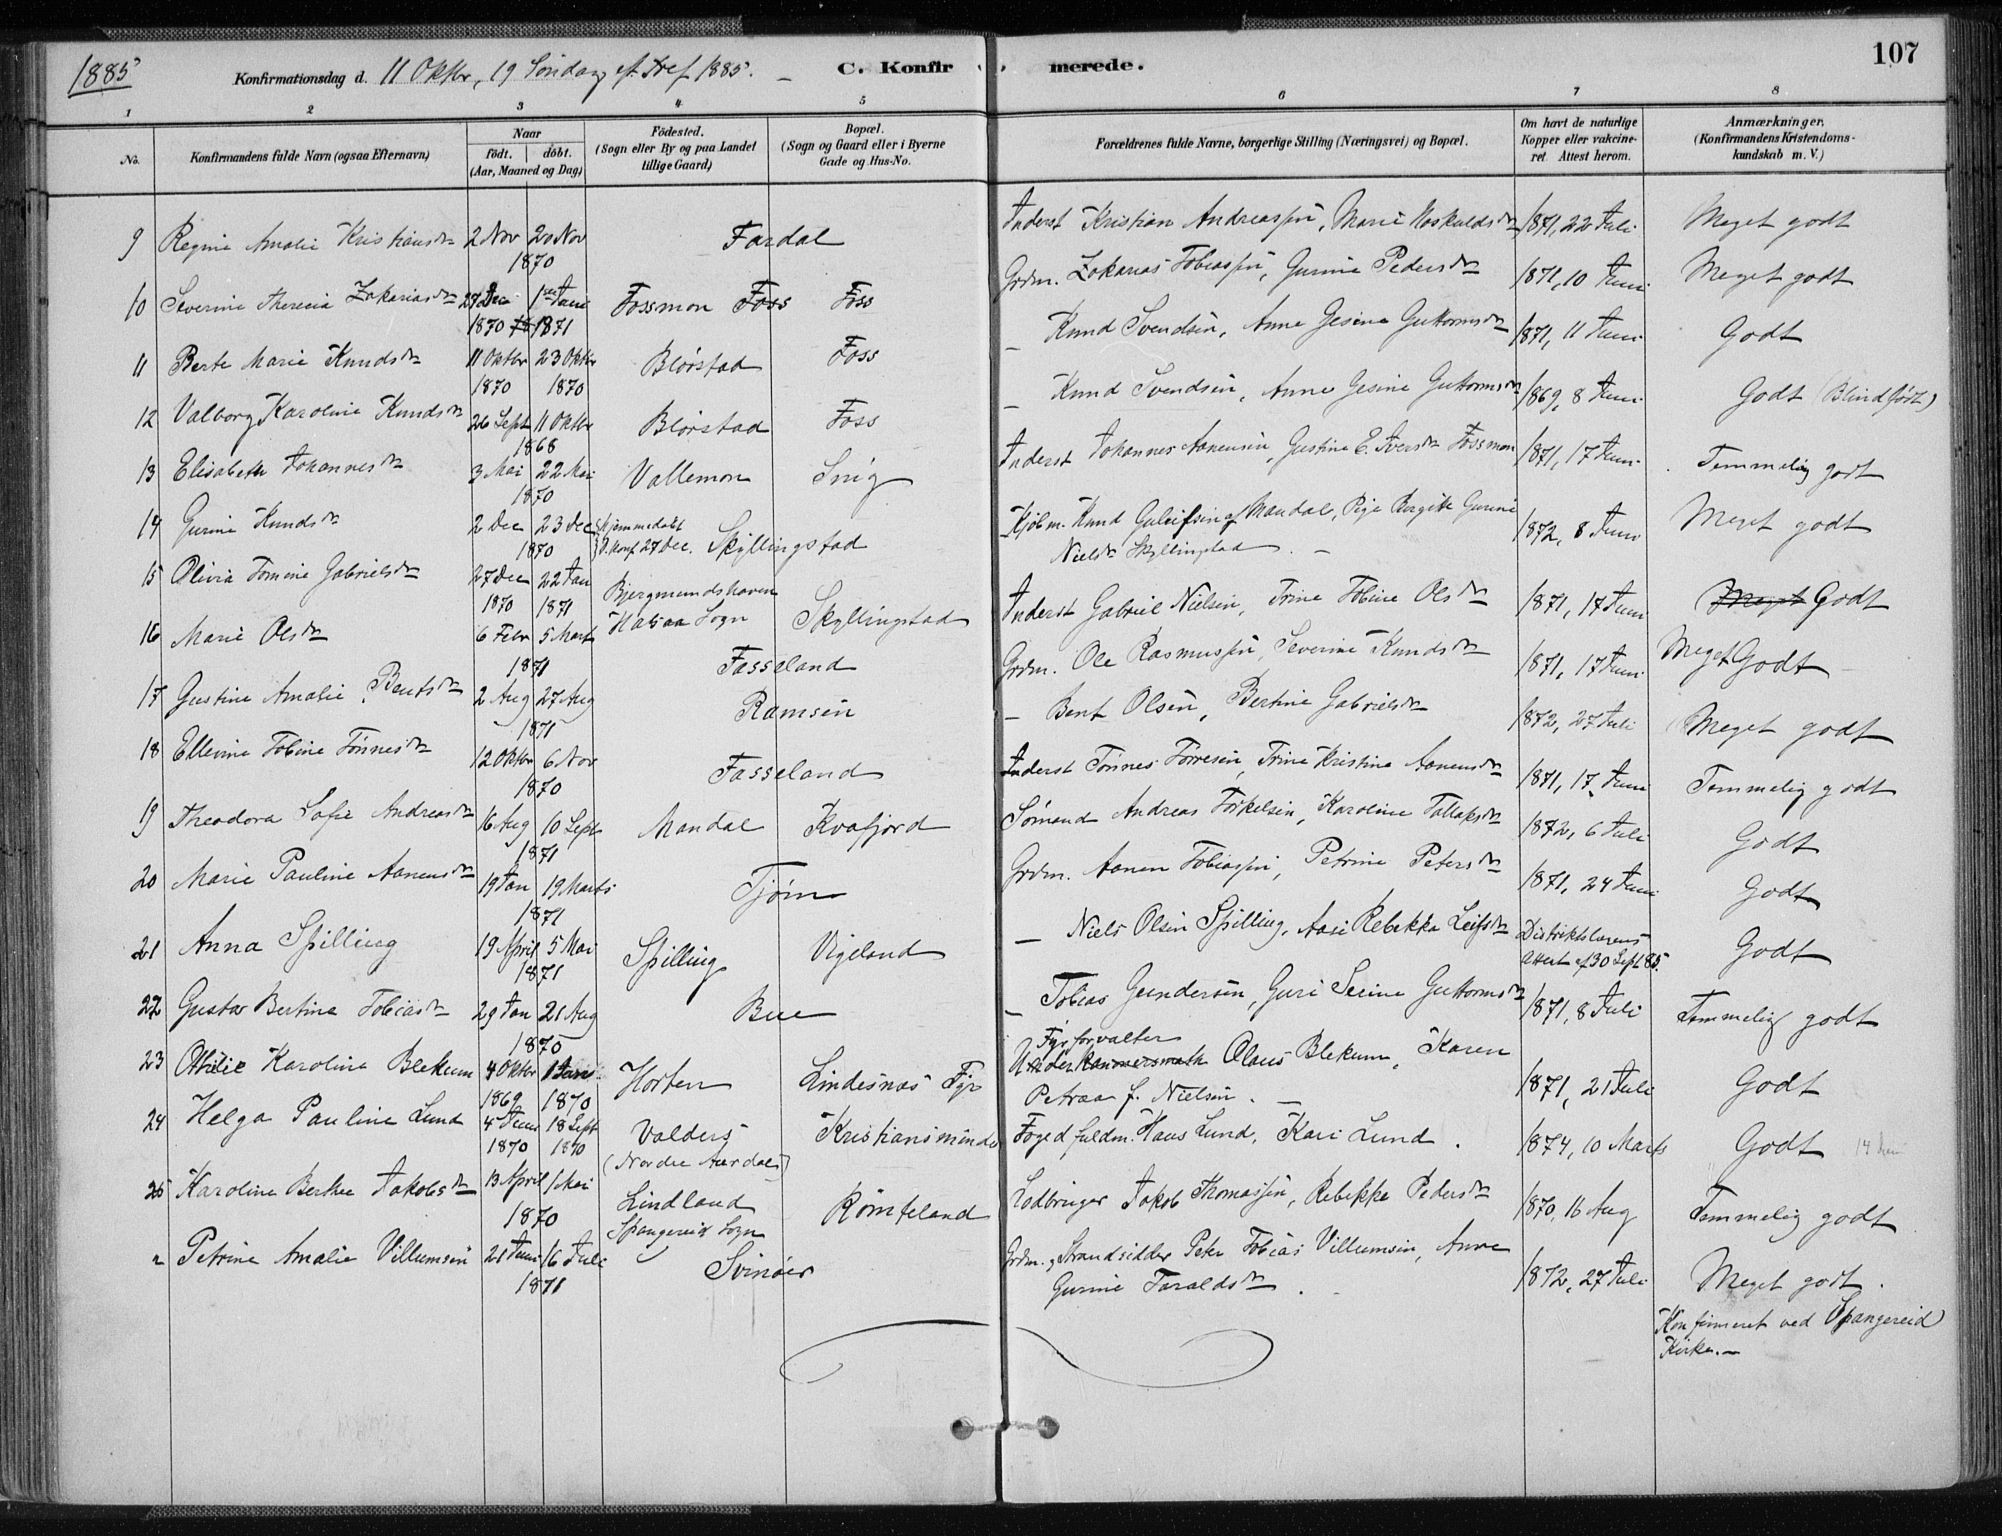 1885
Konfirmationsdag d. 11 Oktbr, 19 Søndag eft Tref 1885. C. Konfirmerede. 107
1 2 3 4 5 6 7 8
No. Konfirmandens fulde Navn (ogsaa Efternavn) Naar født. døbt. (Aar, Maaned og Dag) Fødested. (Sogn eller By og paa Landet tillige Gaard) Bopæl. (Sogn og Gaard eller i Byerne Gade og Hus-No. Forældrenes fulde Navne, borgerlige Stilling (Næringsvei) og Bopæl. Om havt de naturlige Kopper eller vakcineret. Attest herom. Anmærkninger. (Konfirmandens Kristendomskundskab m. V.)
9 Regine Amalie Kristiansdtr 2 Nov 20 Nov 1870 Fardal Inderst Kristian Andreassen, Marie Hoskuldsdtr 1871, 22 Juli Meget godt
10 Severine Theresia Zakariasdtr 27 Dec 1870 1ste Jan 1871 Fossmon Foss Foss Grdm. Zakarias Tobiassen, Gurine Pedersdtr 1871, 10 Juni Meget godt
11 Berte Marie Knudsdtr 11 Oktbr 1870 23 Oktbr 1870 Blørstad Foss – Knud Svendsen, Anne Gesine Guttormsdtr 1871, 11 Juni Godt
12 Valborg Karoline Knudsdtr 26 Sept 11 Oktbr 1868 Blørstad Foss – Knud Svendsen, Anne Gesine Guttormsdtr 1869, 8 Juni Godt (Blindfødt)
13 Elisabeth Johannesdtr 3 Mai 22 Mai 1870 Vallemon Snig Inderst Johannes Aanensen, Gustine E. Iversdtr Fossmon 1871, 17 Juni Temmelig godt
14 Gurine Knudsdtr 2 Dec 23 Dec 1870 Hjemmedøbt 27 Dec. Skyllingstad Kjøbm. Knud Guleifsen af Mandal, Pige Birgitte Gurine Nielsdtr Skyllingstad. – 1872, 8 Juni Meget godt
15 Olivia Tomine Gabrielsdtr 27 Dec 1870 22 Jan 1871 Bjergmundshaven Halsaa Sogn Skyllingstad Inderst Gabriel Nielsen, Trine Tobine Olsdtr 1871, 17 Juni Meget Godt
16 Marie Olsdtr 6 Febr 5 Marts 1871 Fasseland Grdm. Ole Rasmussen, Severine Knudsdtr 1871, 17 Juni Meget Godt
17 Gustine Amalie Bentsdtr 2 Aug 27 Aug 1871 Ramsen – Bent Olsen, Bertine Gabrielsdtr 1872, 27 Juli Meget godt
18 Ellevine Tobine Tønnesdtr 12 Oktbr 6 Nov 1870 Fasseland Inderst Tønnes Tørresen, Trine Kristine Aanensdtr 1871, 17 Juni Temmelig godt
19 Theodora Sofie Andreasdtr 16 Aug 10 Sept 1871 Mandal Kvafjord Sømand Andreas Torkelsen, Karoline Tallaksdtr 1872, 6 Juli Godt
20 Marie Pauline Aanensdtr 19 Jan 19 Marts 1871 Tjørn Grdm. Aanen Tobiassen, Petrine Petersdtr 1871, 24 Juni Godt
21 Anna Spilling 19 April 5 Mai 1871 Spilling Vigeland – Niels Olsen Spilling, Aase Rebekka Leifsdtr Distriktslægens Attest af 30 Sept 85. Godt
22 Gustav Bertine Tobiasdtr 29 Jan 21 Aug 1870 Bue – Tobias Gundersen, Guri Serine Guttormsdtr 1871, 8 Juli Temmelig godt
23 Othilie Karoline Blekum 4 Oktbr 1869 1 Jan 1870 Horten Lindesnæs Fyr Fyrforvalter Olaus Blekum, Karen Petraa f. Nielsen. – 1871, 21 Juli Godt
24 Helga Pauline Lund 4 Juni 1870 18 Sept 1870 Valders (Nordre Aurdal) Kristiansminde Fogedfuldm. Hans Lund, Kari Lund. 1874, 10 Marts Godt
25 Karoline Berthe Jakobsdtr 13 April 1 Mai 1870 Lindland Spangereid Sogn Rømteland Lodbringer Jakob Thomassen, Rebekka Pedersdtr 1870, 16 Aug Temmelig godt
Petrine Amalie Villumsen 21 Juni 16 Juli 1871 Svinøer Grdm., Strandsidder Peter Tobias Villumsen, Anne Gurine Taraldsdtr. 1872, 27 Juli Meget godt.
Konfirmeret ved Spangereid Kirke. –